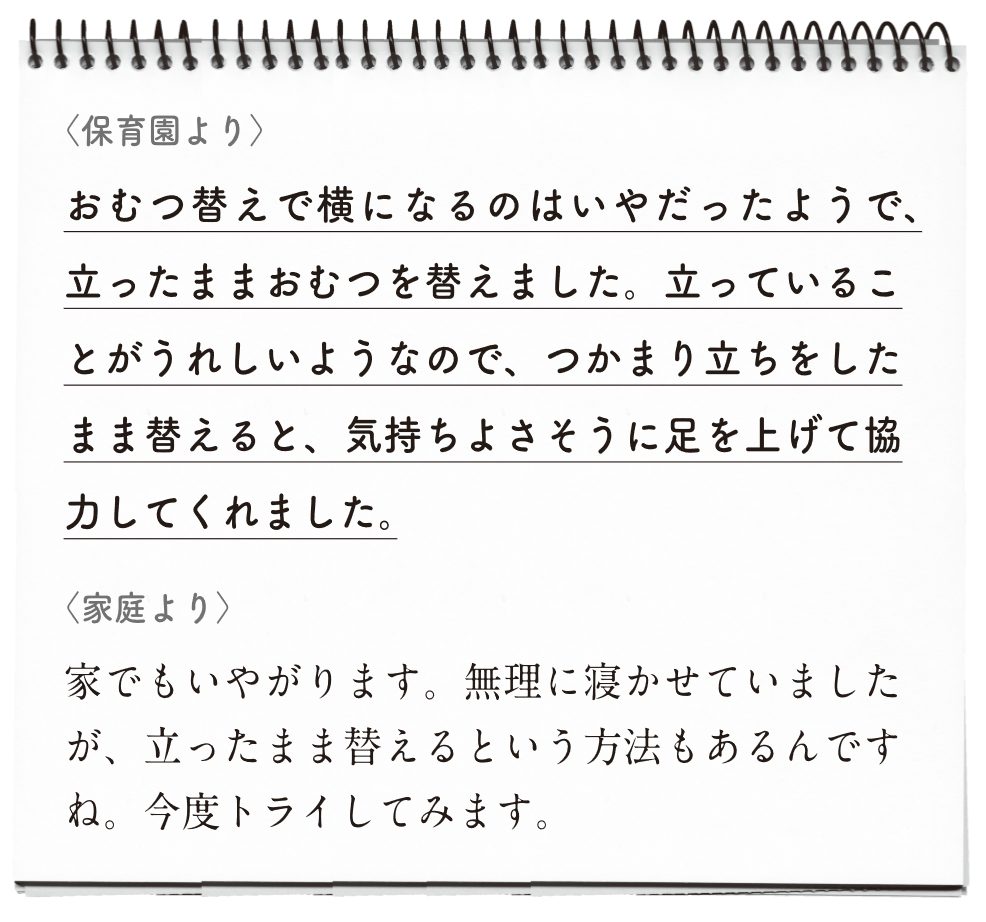 〈保育園より〉
おむつ替えで横になるのはいやだったようで、
立ったままおむつを替えました。立っているこ
とがうれしいようなので、つかまり立ちをした
まま替えると、気持ちよさそうに足を上げて協
力してくれました。
〈家庭より〉
家でもいやがります。無理に寝かせていました
が、立ったまま替えるという方法もあるんです
ね。今度トライしてみます。